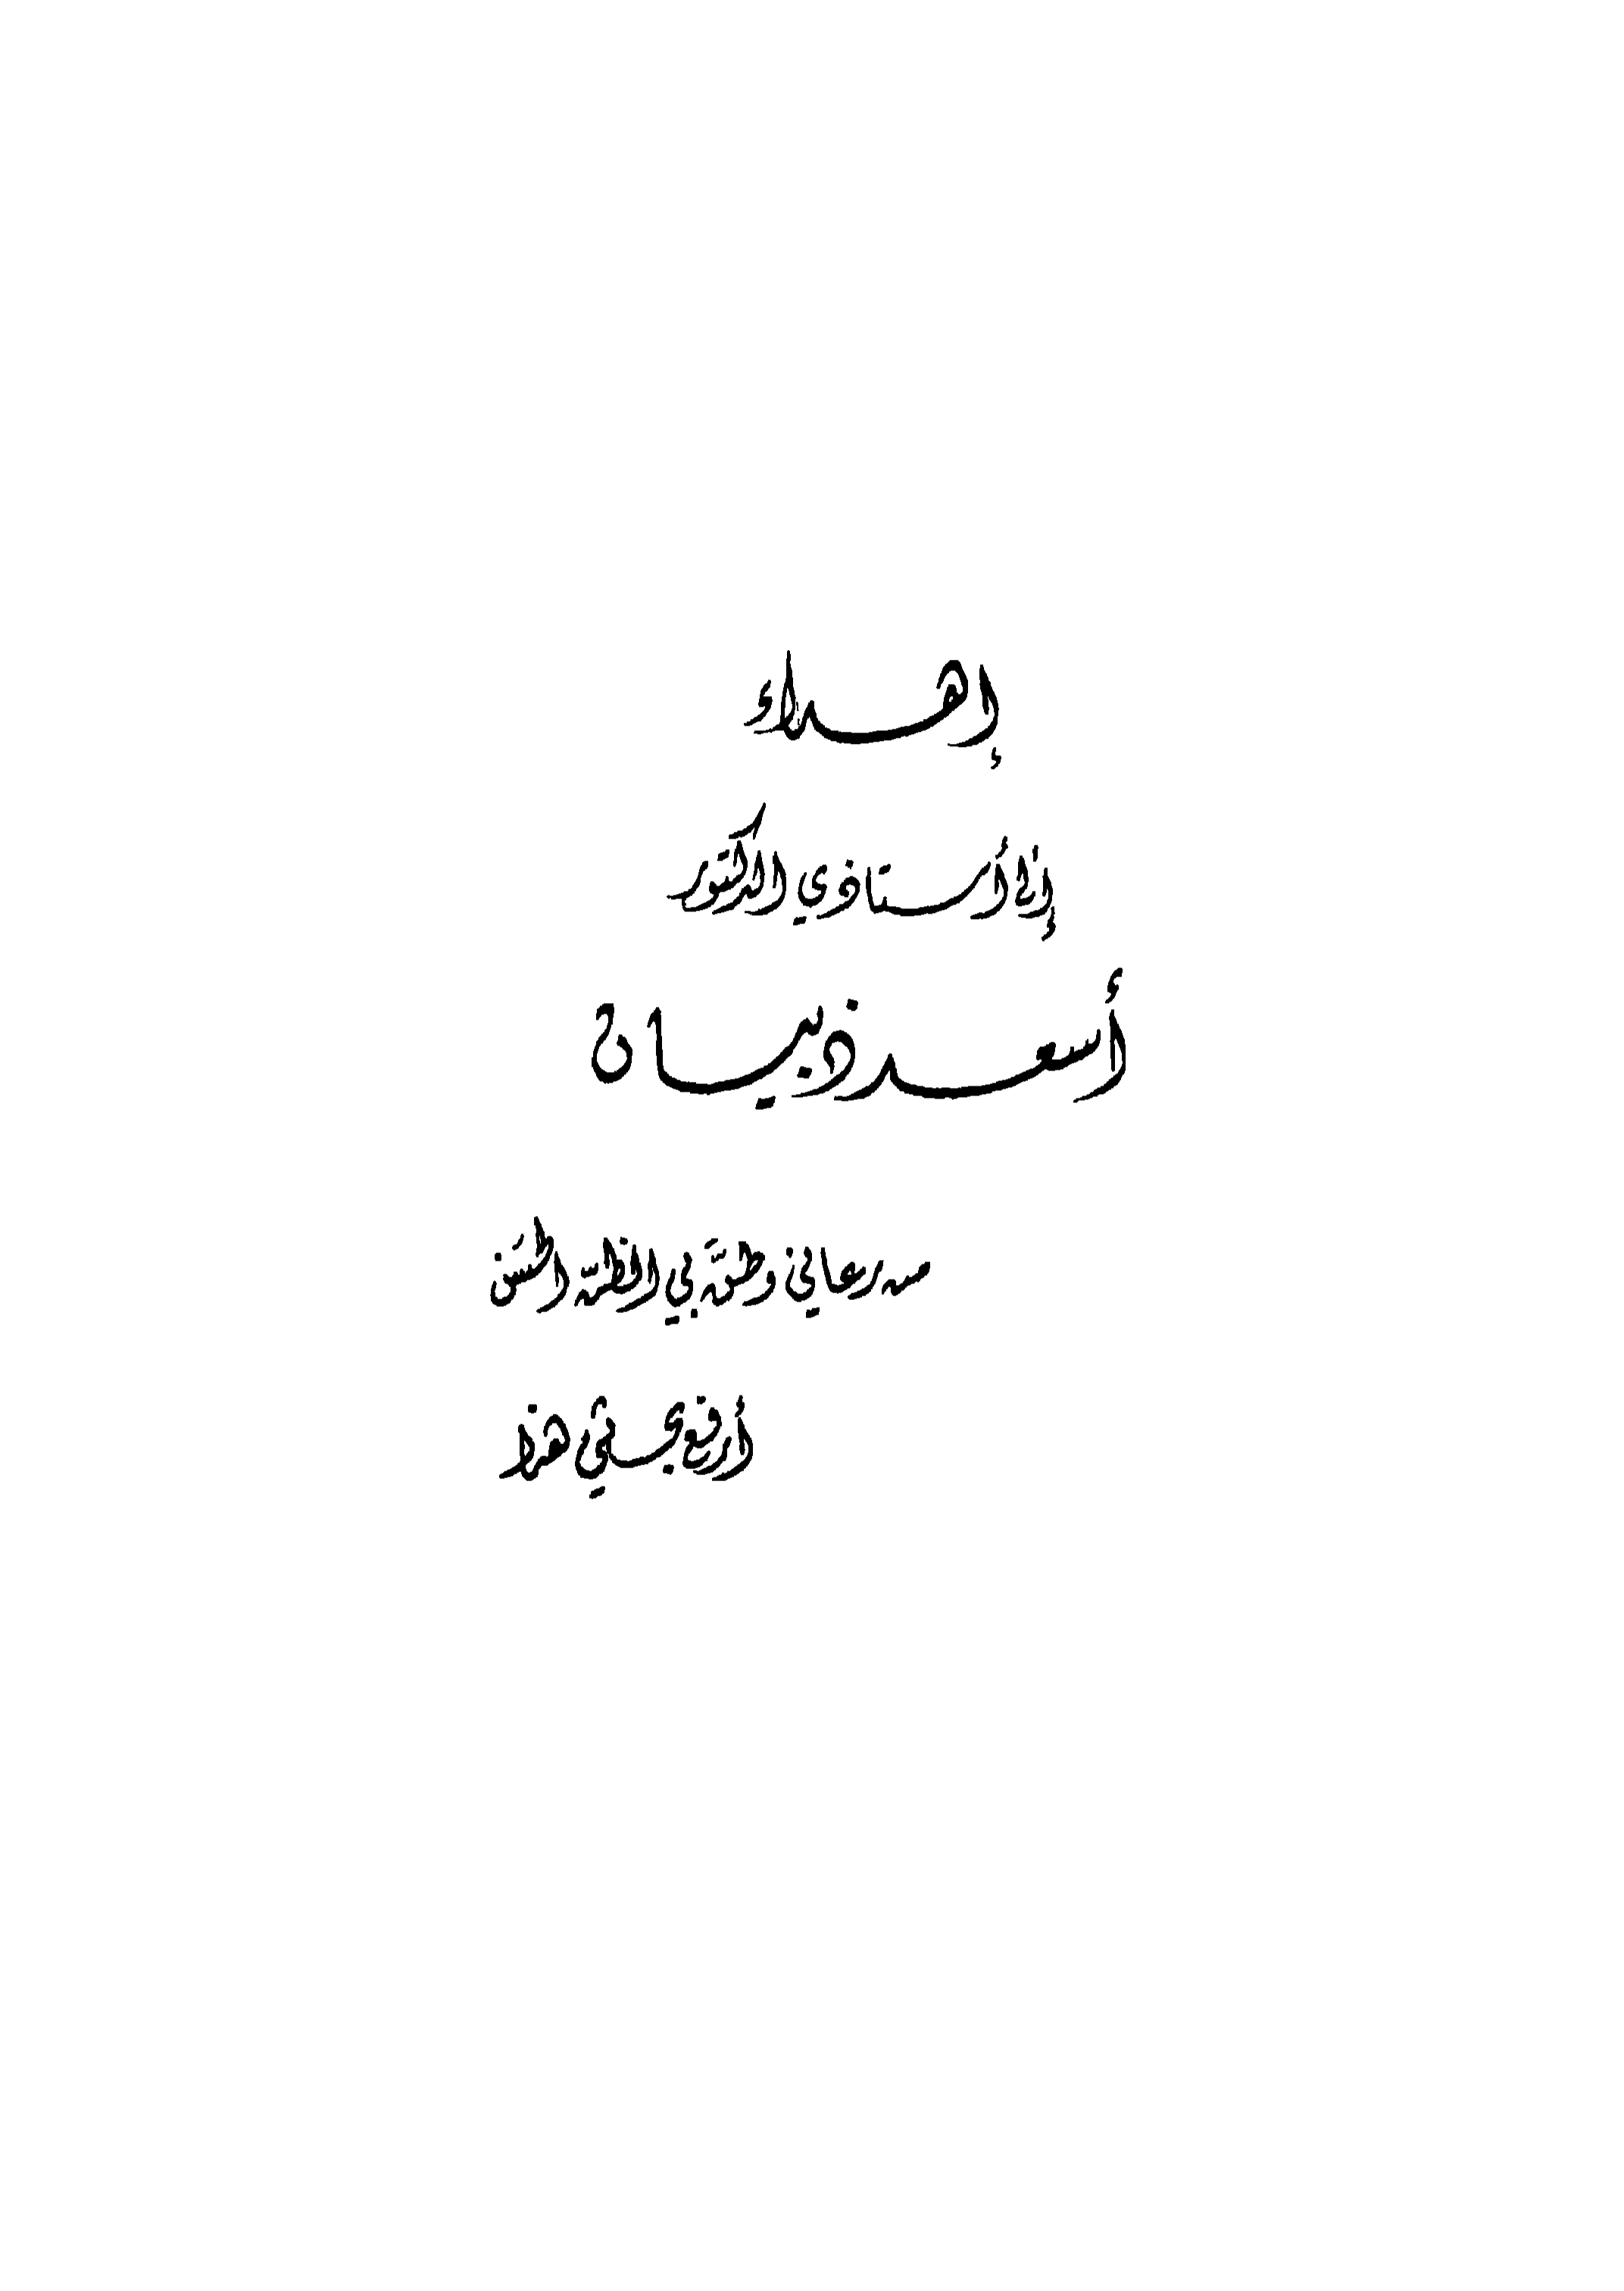 إهداء
إلى أستاذي الدكتور
أسعد ذبيان
من رعاني وحقق بي الظنّ الحسن
أرفع بحثي هذا